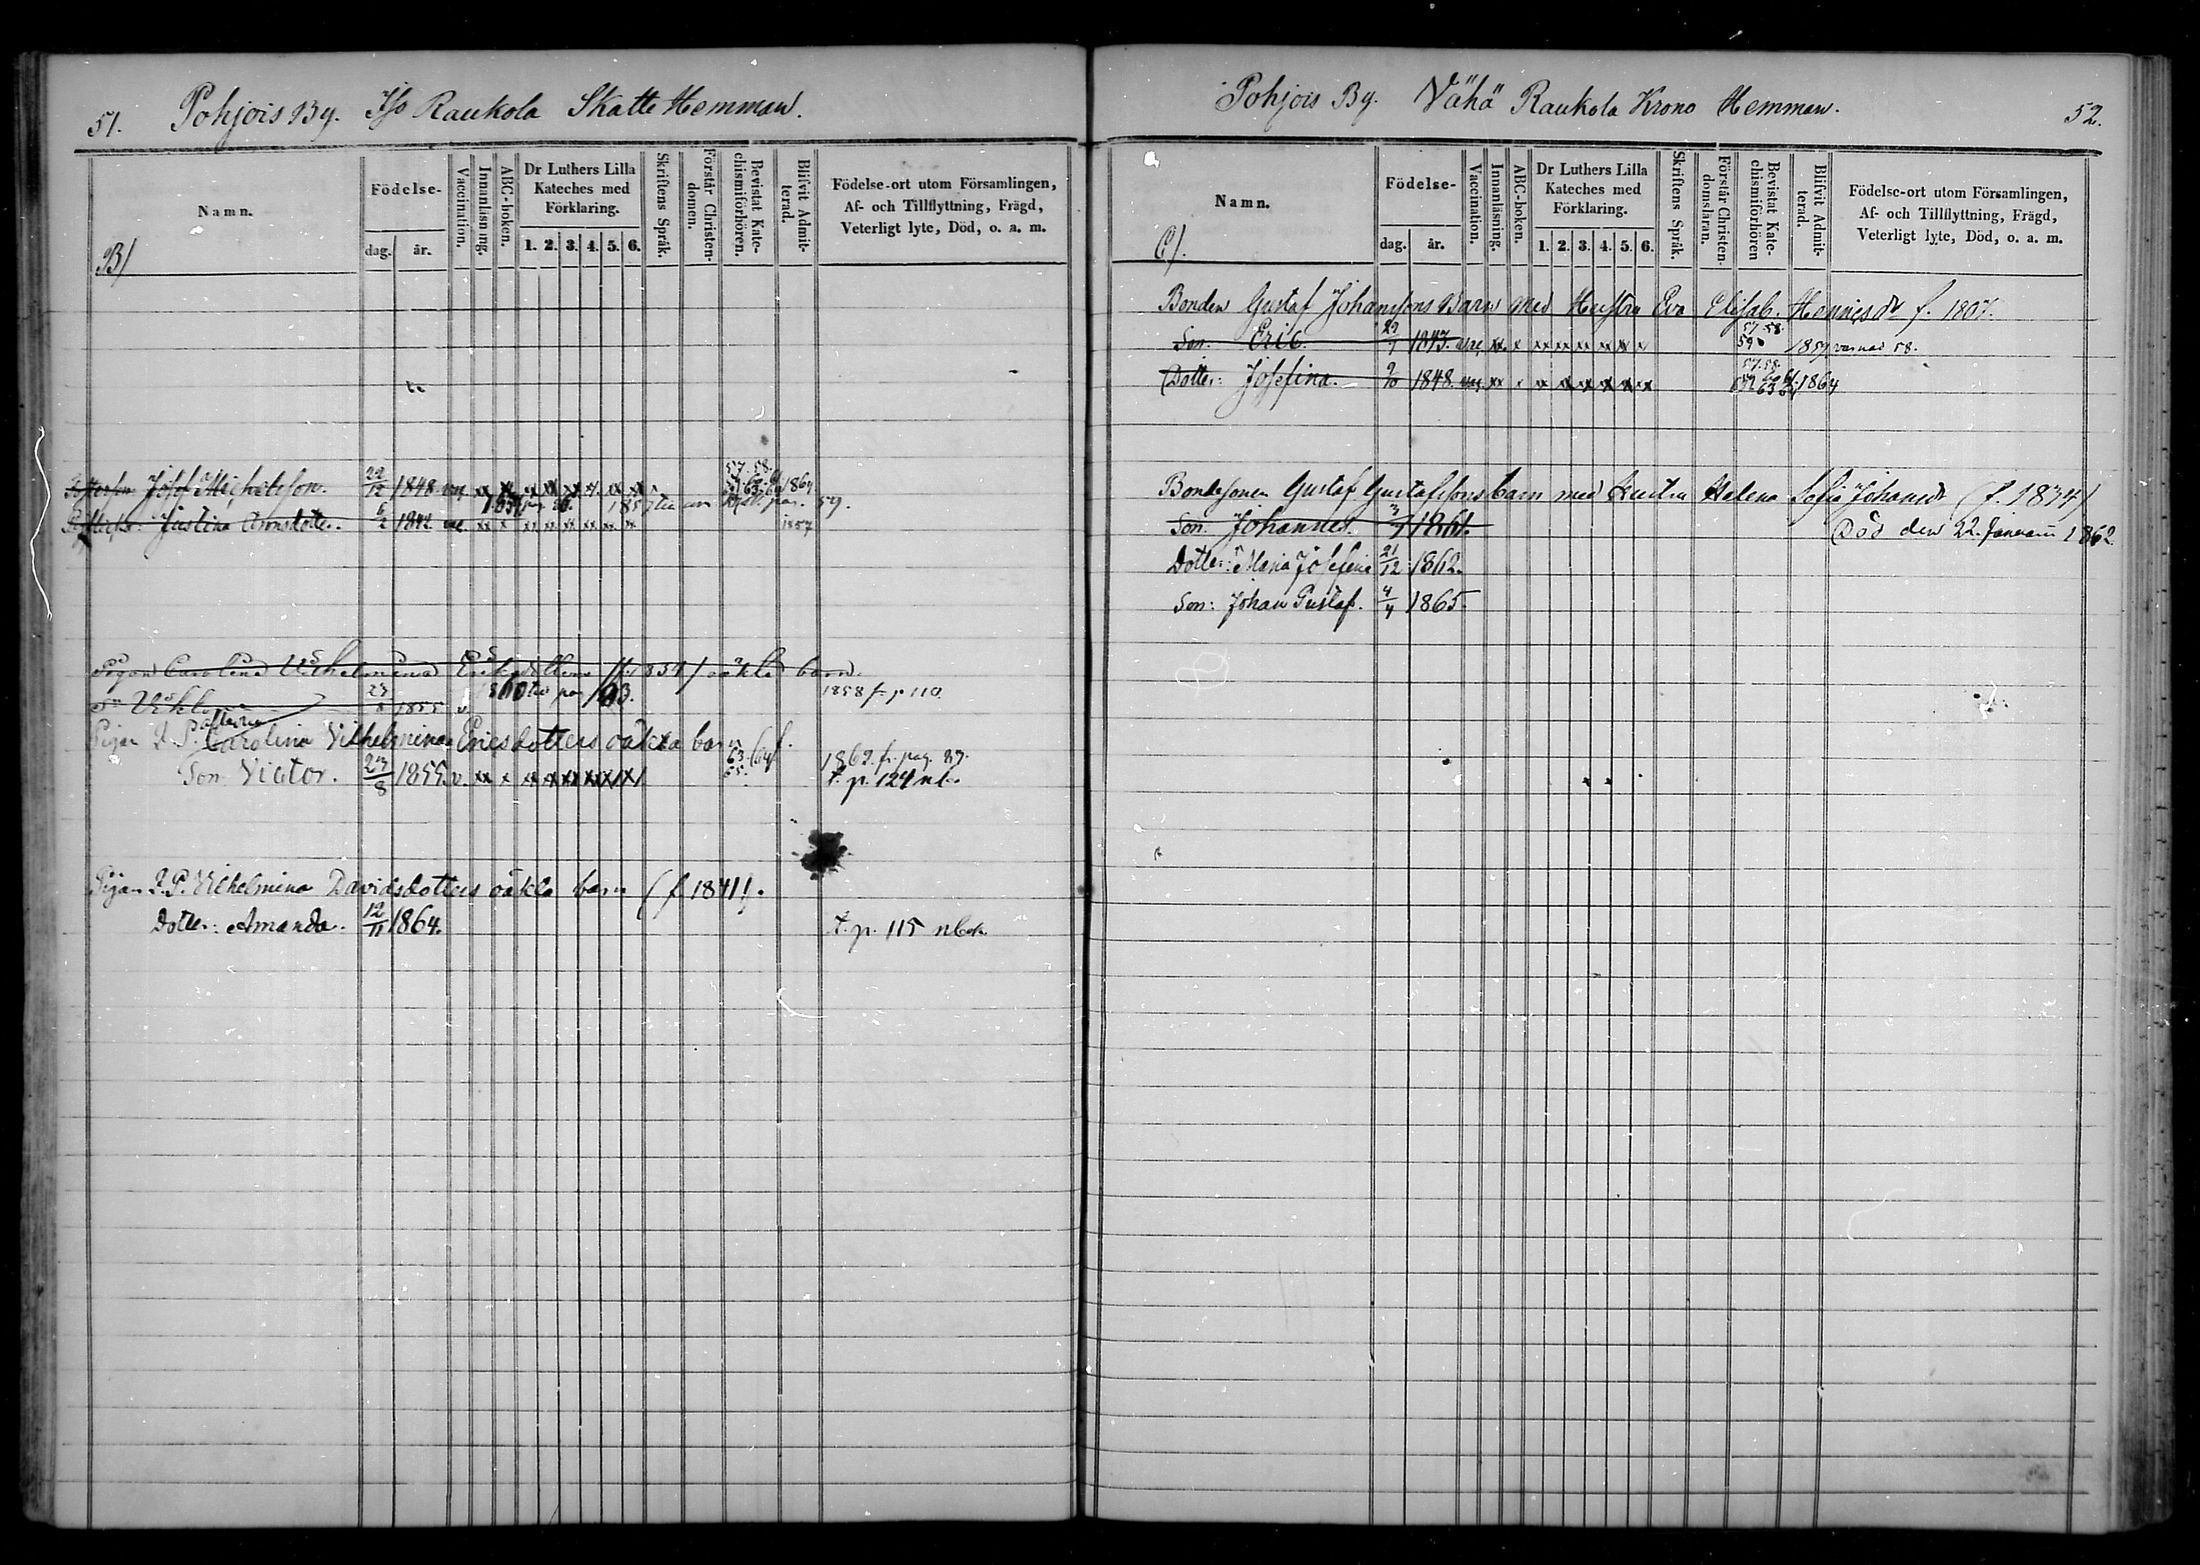 51. Pohjois By. Iso Raukola Skatte Hemman.
Namn.
B)
Födelse-
dag. år.
Vaccination.
Innanläsning.
ABC-boken.
Dr Luthers Lilla
Kateches med
Förklaring.
1. 2. 3. 4. 5. 6.
Skriftens Språk.
Förstår Christen-
domen.
Bevistat Kate-
chismiförhören.
Blifvit Admit-
terad.
Födelse-ort utom Församlingen,
Af- och Tillflyttning, Frägd,
Veterligt lyte, Död, o. a. m.
57. 58.
Josef Michelsson. 22/12 1848 1864
59.
Justina 6/2 1842 1857
Pigan Carolina Vilhelmina Eriksdotters oäkta barn
1855 v 1860 1858 fr p 110.
Pigan I. P. Carolina Vilhelmina Ericsdotters oäkta barn
63. 64
Son Victor. 23/8 1855 v. xx x 65. 1862. fr. pag. 87.
t. p. 124 n.b.
Pigan I. P. Vilhelmina Davidsdotters oäkta barn (f 1841).
Dotter: Amanda. 12/11 1864. t. p. 115 nbok.
Pohjois By. Vähä Raukola Krono Hemman. 52.
Namn.
C).
Födelse-
dag. år.
Vaccination.
Innanläsning.
ABC-boken.
Dr Luthers Lilla
Kateches med
Förklaring.
1. 2. 3. 4. 5. 6.
Skriftens Språk.
Förstår Christen-
domsläran.
Bevistat Kate-
chismiförhören
Blifvit Admit-
terad.
Födelse-ort utom Församlingen,
Af- och Tillflyttning, Frägd,
Veterligt lyte, Död, o. a. m.
Bonden Gustaf Johanssons Barn med Hustru Eva Elisab. Henricsdr f. 1807.
57. 58.
Son: Eric. 1843. 59 1859
57. 58.
Dotter: Josefina. 1848. 1864
Bondesonen Gustaf Gustafssons barn med Hustru Helena Sofia Johansdr (f. 1834)
Son: Johannes. 1861. Död den 22. Januarii 1862.
Dotter: Maria Josefina 21/12 1862.
Son: Johan Gustaf. 4/4 1865.